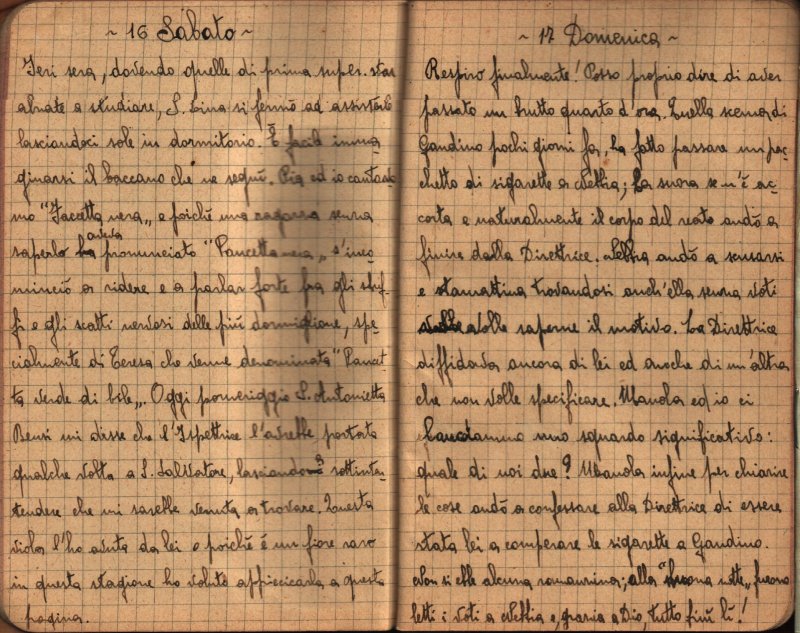 ~ 16 Sábato ~
Ieri sera, dovendo quelle di prima super. star
alzate a studiare, S. Lina si fermò ad assisterle
lasciandoci sole in dormitorio. È facile imma
ginarsi il baccano che ne seguì. Pia ed io cantava
mo "Faccetta nera„ e poichè una ragazza senza
saperlo aveva pronunciato "Pancetta nera„ s'inco
minciò a ridere e a parlar forte fra gli sbuf-
fi e gli scatti nervosi delle più dormiglione, spe
cialmente di Teresa che venne denominata "Pancet
ta verde di bile„. Oggi pomeriggio S. Antonietta
Bensi mi disse che l'Ispettrice l'avrebbe portata
qualche volta a S. Salvatore, lasciando sottinte-
tendere che mi sarebbe venuta a trovare. Questa
viola l'ho avuta da lei e poichè è un fiore raro
in questa stagione ho voluto appiccicarla a questa
pagina.
~ 17 Domenica ~
Respiro finalmente! Posso proprio dire di aver
passato un brutto quarto d'ora. Quella scema di
Gandino pochi giorni fa, ha fatto passare un pac-
chetto di sigarette a Nettia; la suora se n'è ac-
corta e naturalmente il corpo del reato andò a
finire dalla Direttrice. Nettia andò a scusarsi
e stamattina trovandosi anch'ella senza voti
volle saperne il motivo. La Direttrice
diffidava ancora di lei ed anche di un'altra
che non volle specificare. Manola ed io ci
lanciammo uno sguardo significativo:
quale di noi due? Manola infine per chiarire
le cose andò a confessare alla Direttrice di essere
stata lei a comperare le sigarette a Gandino.
Non si ebbe alcuna romanzina; alla "buona notte„ furono
letti i voti a Nettia e, grazie a Dio, tutto finì lì!